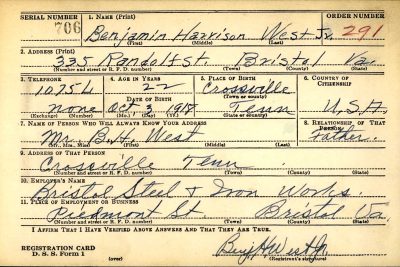 SERIAL NUMBER 1. NAME (Print) ORDER NUMBER
706 Benjamin Harrison West Jr. 291
(First) (Middle) (Last)
2. ADDRESS (Print)
335 Randolf St. Bristol Va.
(Number and street or R. F. D. number) (Town) (County) (State)
3. TELEPHONE 4. AGE IN YEARS 5. PLACE OF BIRTH 6. COUNTRY OF CITIZENSHIP
1075 22 Crossville
(Town or county)
DATE OF BIRTH
none Oct 3 1918 Tenn U.S.A.
(Exchange) (Number) (Mo.) (Day) (Yr.) (State or country)
7. NAME OF PERSON WHO WILL ALWAYS KNOW YOUR ADDRESS 8. RELATIONSHIP OF THAT PERSON
Mr. B.H. West Father
(Mr., Mrs., Miss) (First) (Middle) (Last)
9. ADDRESS OF THAT PERSON
Crossville Tenn
(Number and street or R. F. D. number) (Town) (County) (State)
10. EMPLOYER'S NAME
Bristol Steel & Iron Works.
11. PLACE OF EMPLOYMENT OR BUSINESS
Piedmont St. Bristol Va
(Number and street or R. F. D. number) (Town) (County) (State)
I AFFIRM THAT I HAVE VERIFIED ABOVE ANSWERS AND THAT THEY ARE TRUE.
REGISTRATION CARD
D. S. S. FORM 1 (over) Benj H West Jr
(Registrant's signature)